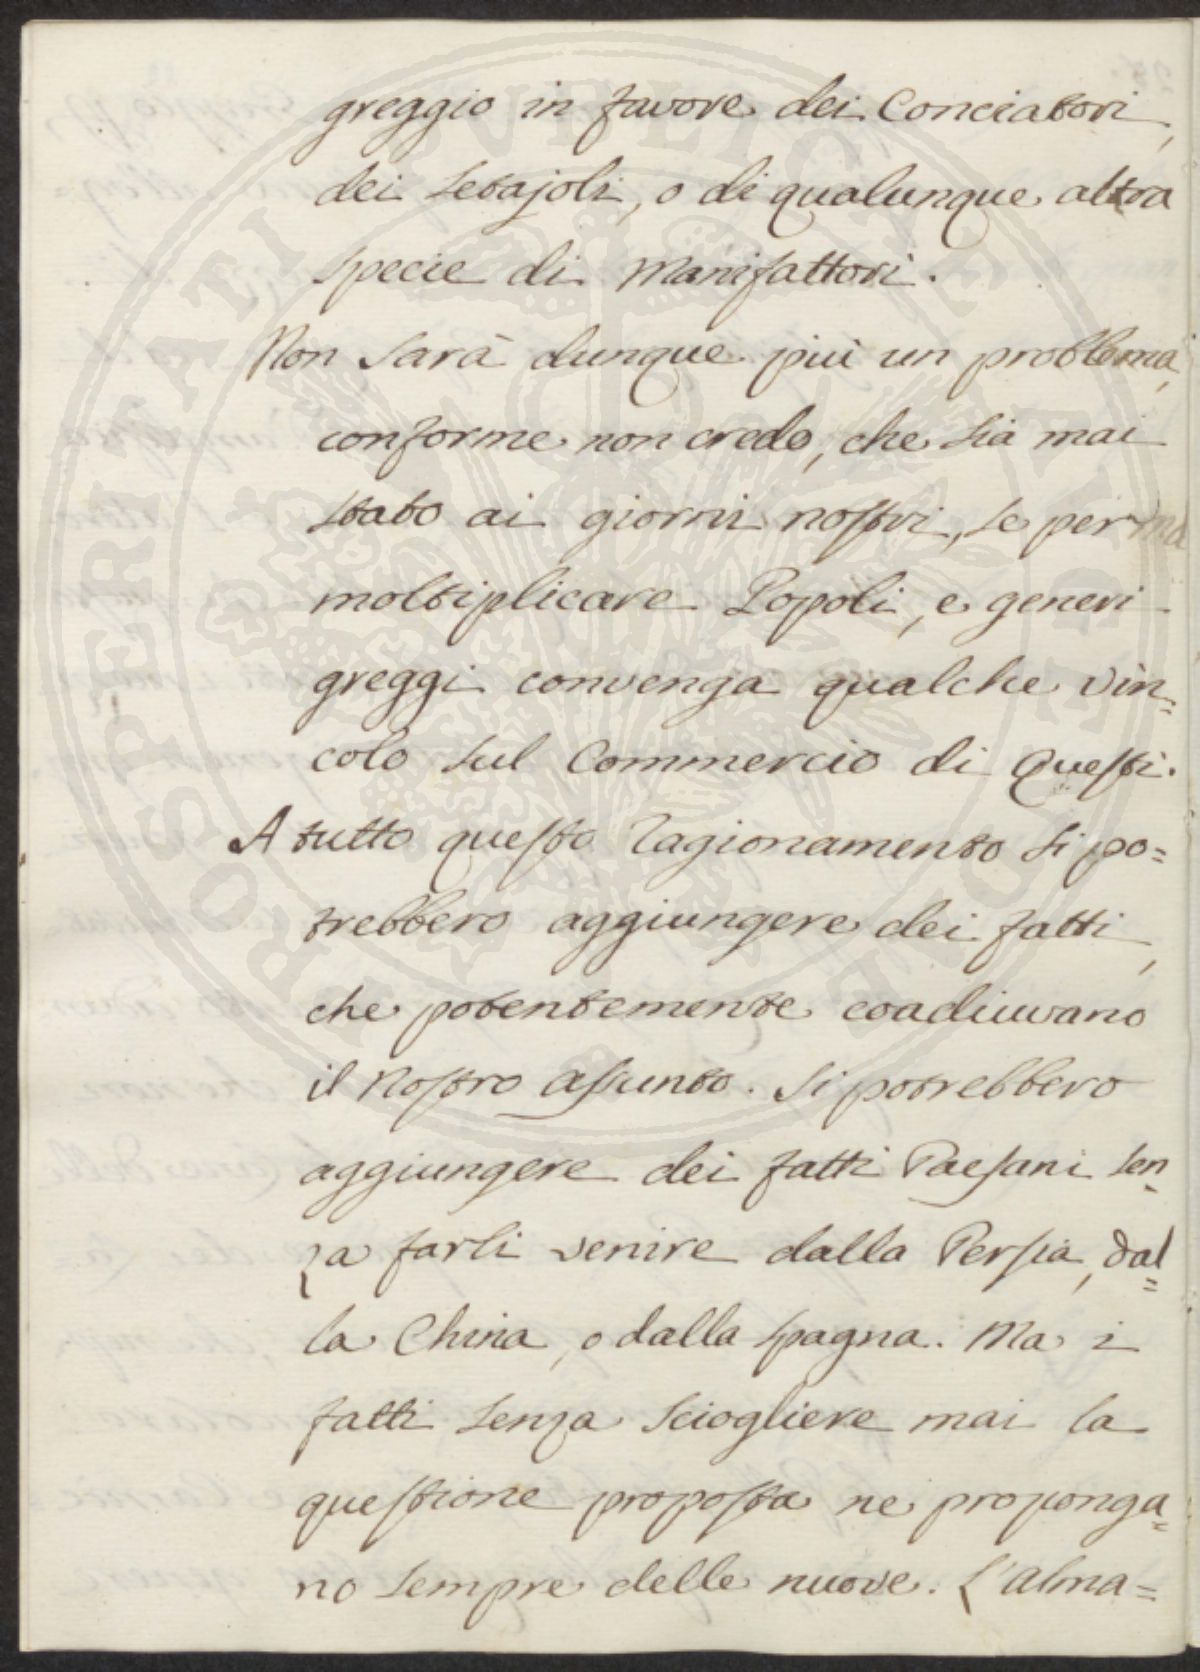 greggio in favore dei Conciatori,
dei Setajoli, o di qualunque altra
specie di Manifattori.
Non Sarà dunque più un problema,
conforme non credo, che sia mai
stato ai giorni nostri, se per
moltiplicare Popoli, e generi
greggi convenga qualche vin=
colo sul Commercio di Questi.
A tutto questo ragionamento si po=
trebbero aggiungere dei fatti,
che potentemente coadiuvano
il Nostro assunto. Si potrebbero
aggiungere dei fatti Paesani sen=
za farli venire dalla Persia, dal=
la China, o dalla Spagna. Ma i
fatti senza sciogliere mai la
questione proposta ne proponga=
no sempre delle nuove. L'Alma=
PROSPERITATI PVBLICAE